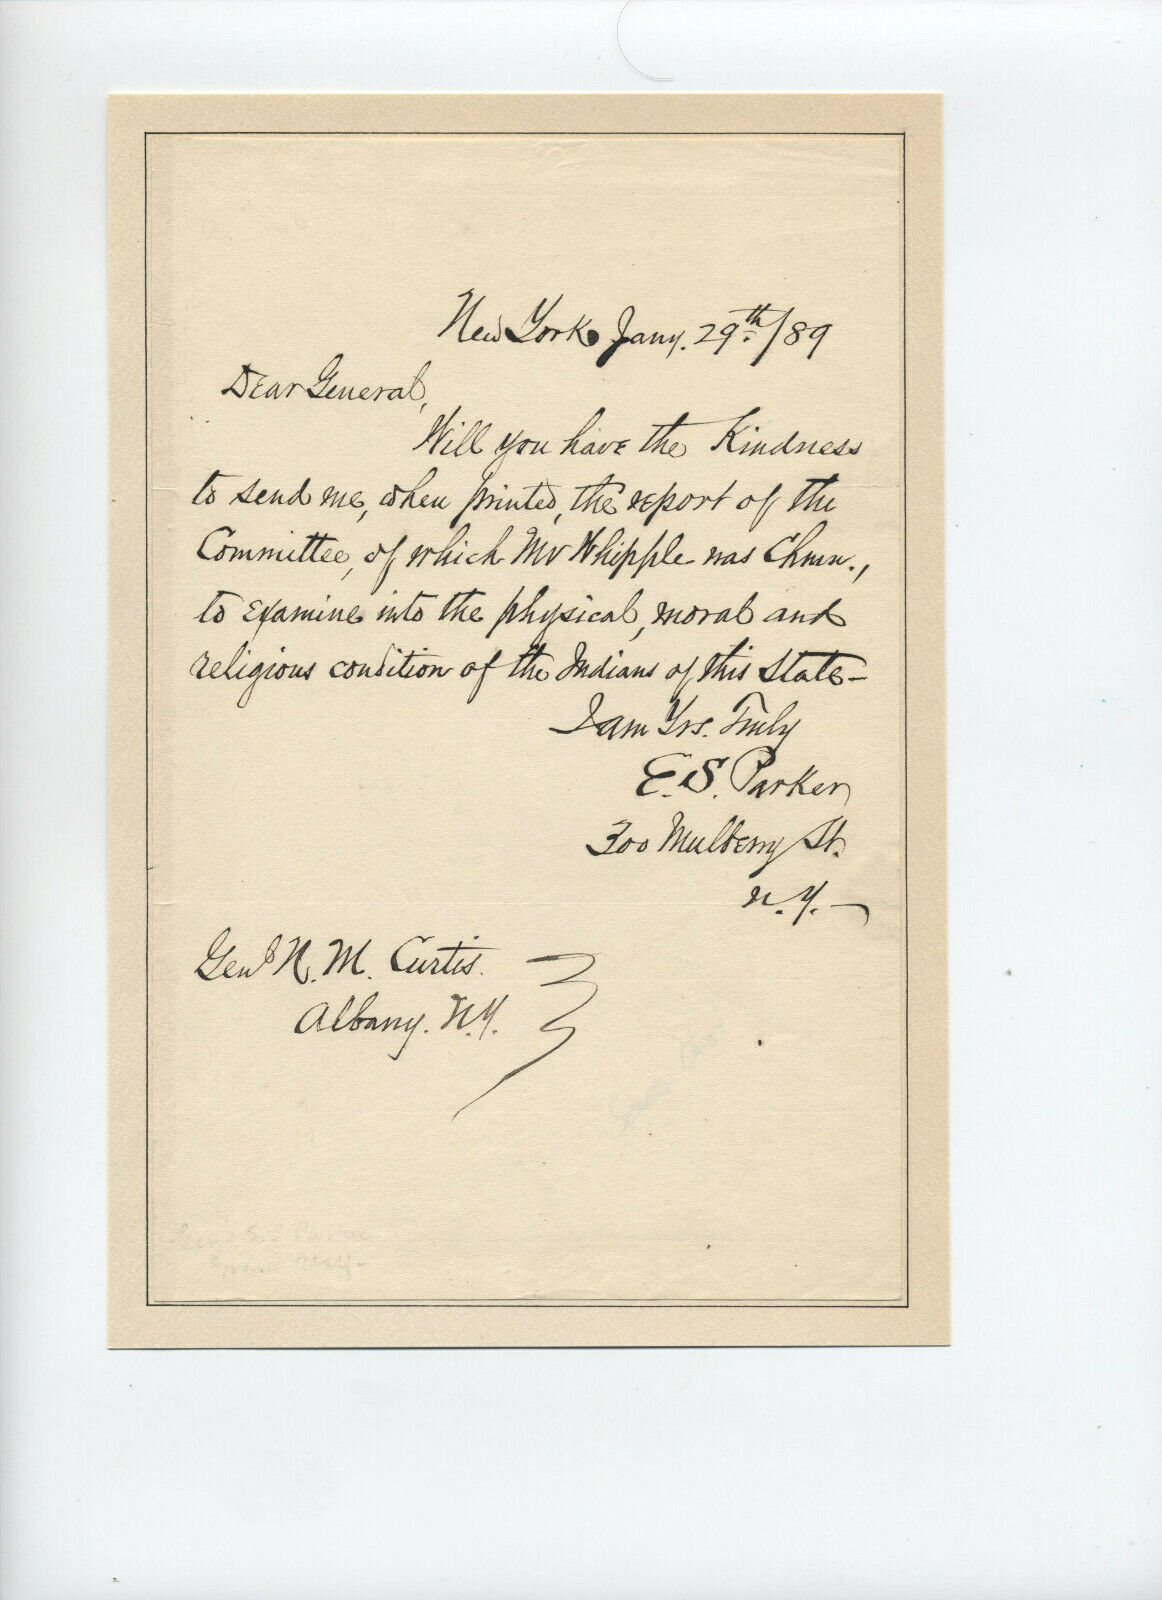 New York Jany. 29th/89
Dear General,
Will you have the Kindness
to send me, when printed, the report of the
Committee, of which Mr Whipple was Chmn.,
to examine into the physical, moral and
religious condition of the Indians of this State—
I am Yrs. Truly
E. S. Parker
300 Mulberry St.
N. Y. —
Genl N. M. Curtis.
Albany. N.Y.